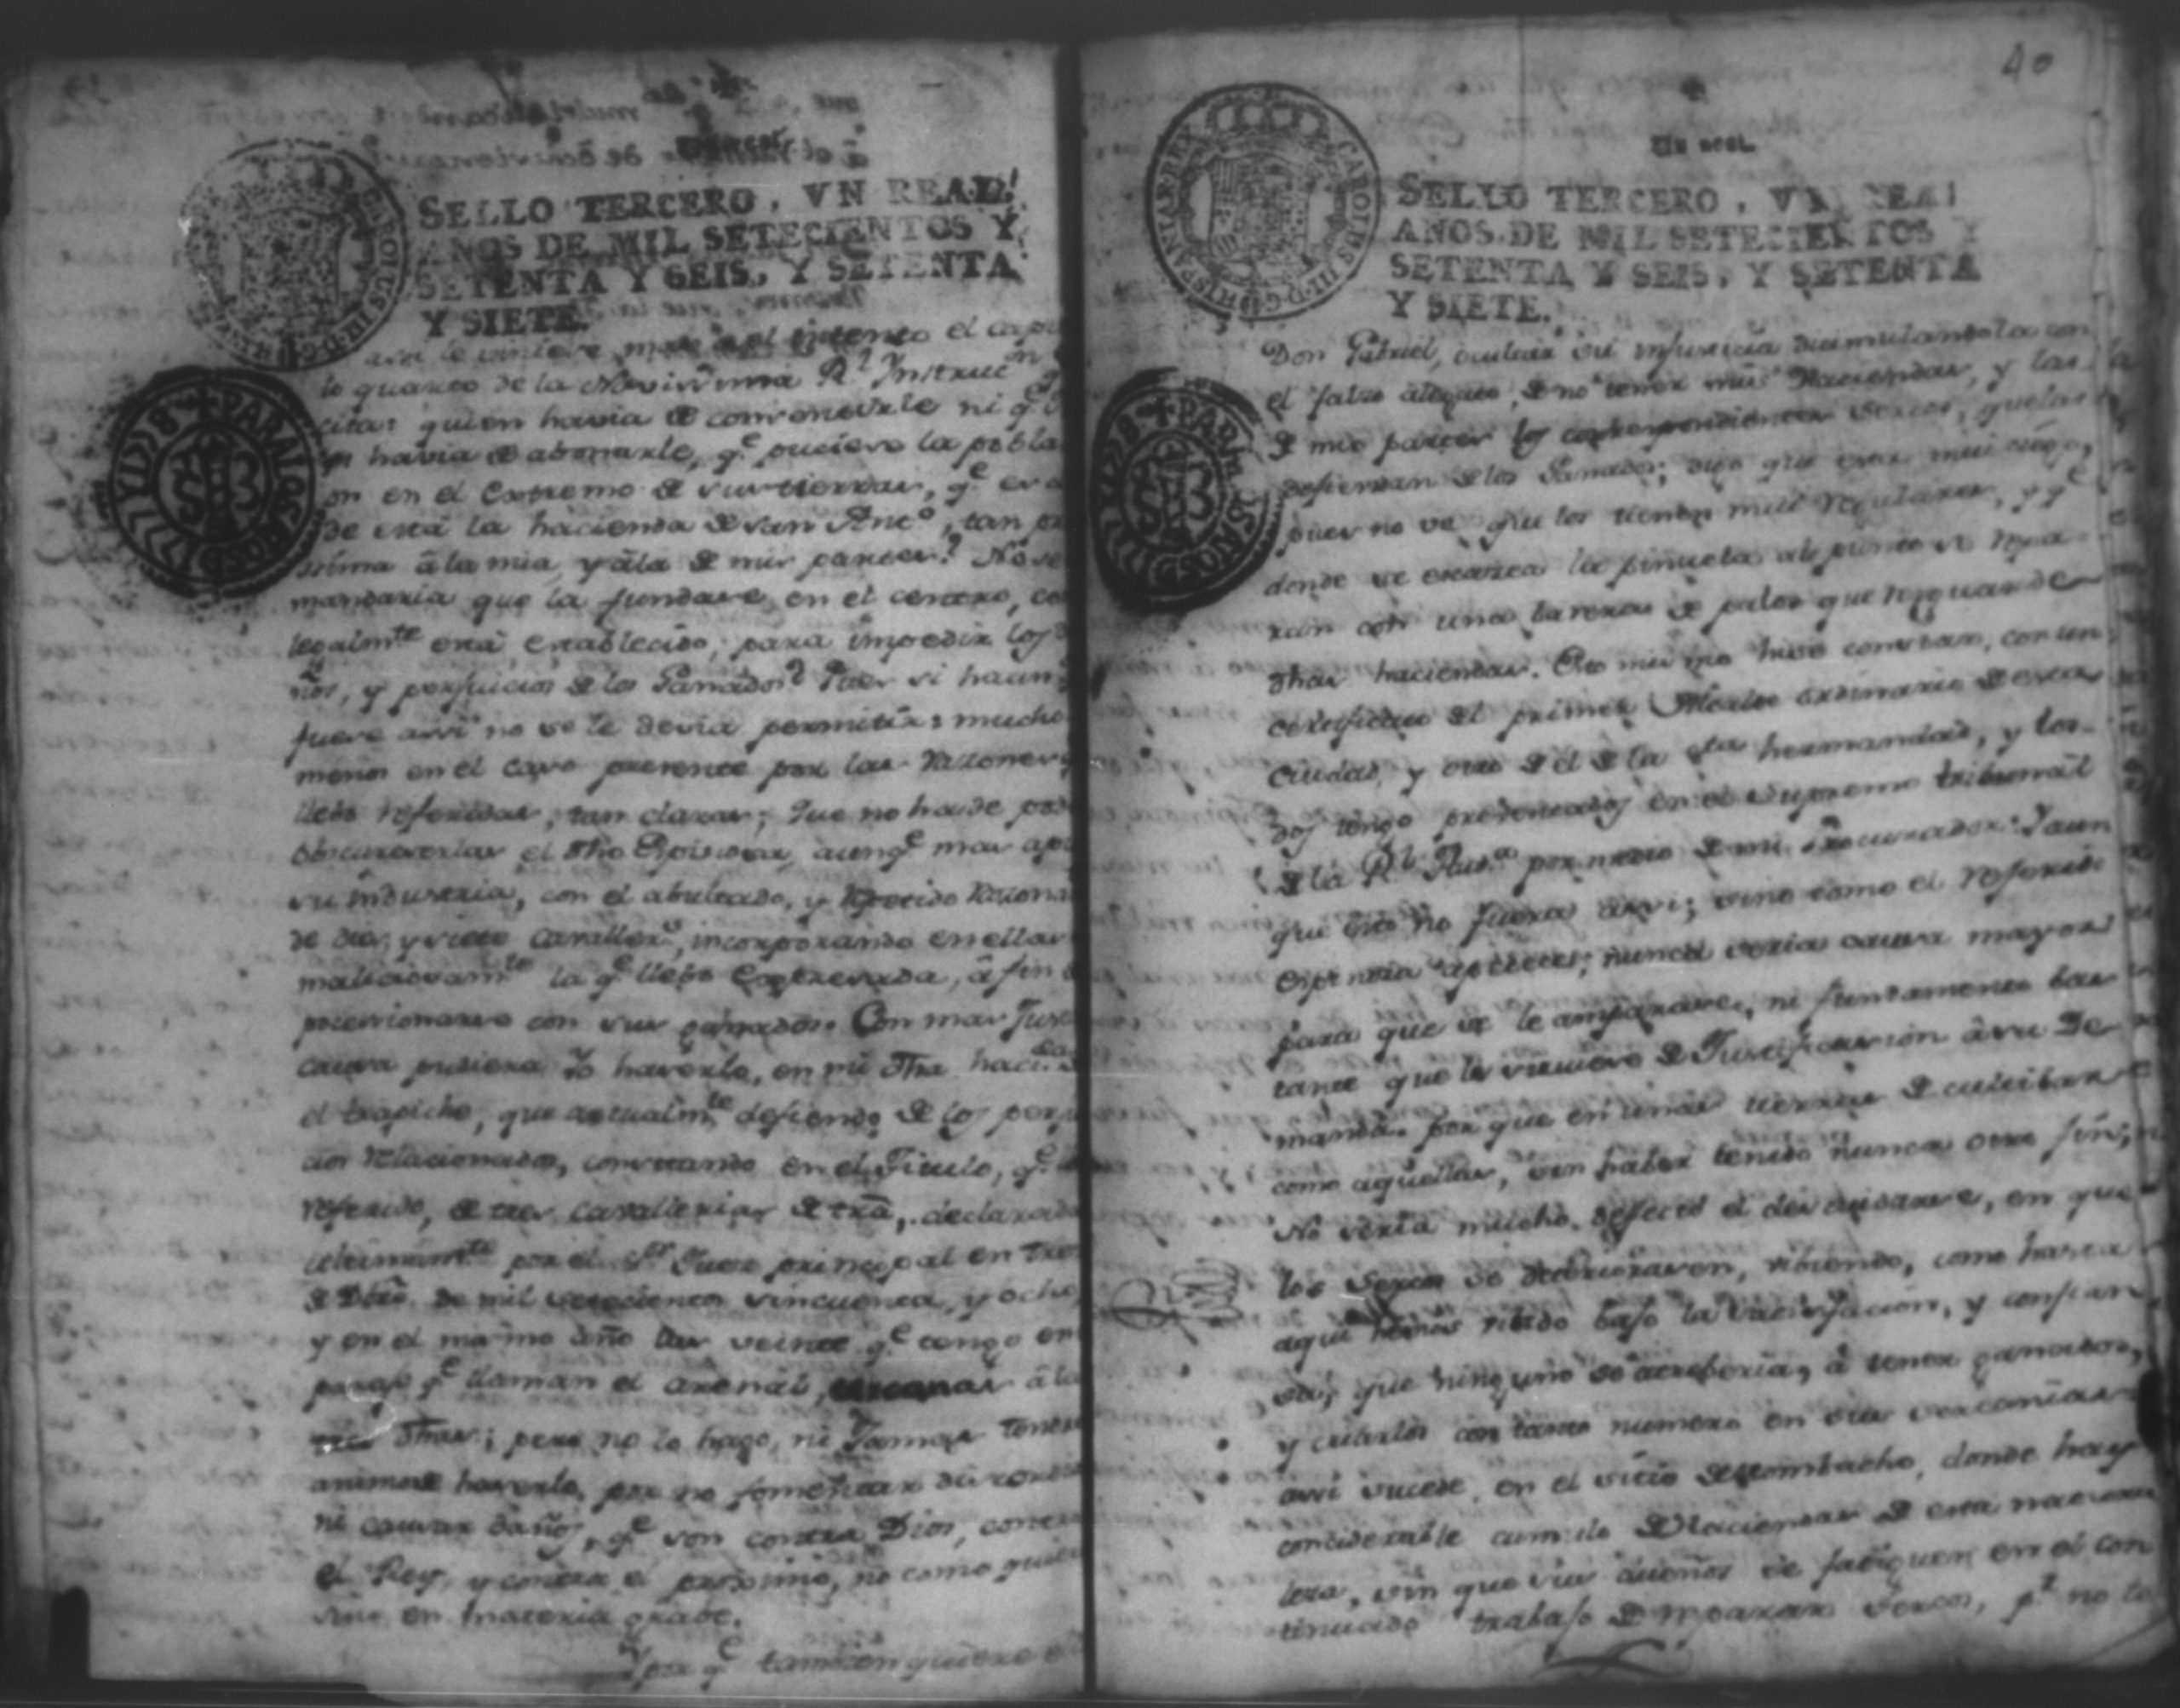 SELLO TERCERO, VN REAL
AÑOS DE MIL SETECIENTOS Y
SETENTA Y SEIS, Y SETENTA
Y SIETE.
CAROLUS III D G
PARA LOS AÑOS D
el intento el capi
lo quarto de la Novissima Rl Instrucon
cita: quien havia de convenevzle ni qe
havia de abonarle, qe pusiese la pobla
on en el extremo de sus tierras, qe es a
de está la hacienda de san Anto, tan pr
sima â la mia, y âla de mis partes? No se
mandaria que la fundase en el centro, co
legalmte está establecido, para impedir los
ños, y perjuicios de los Ganados? Pues si haun
fuese assi no se le devia permitir: mucho
menos en el caso presente por las razones
llebo referidas, tan claras; que no ha de pod
obscurecerlas el dho Espinosa, aunqe mas ap
su industria, con el abultado, y repetido razona
de dies, y siete cavallers, incorporando en ellas
maliciosamte la qe llebo expresada, â fin
poccecionarse con sus ganados. Con mas Just
causa pudiera Yo haserlo, en mi dha hacda
el trapiche, que actualmte defiendo de los perju
cios relacionados, constando en el Titulo, qe
referido, de tres cavallerias de trã, declarado
ultimamte por el Sor Juez principal en tres
de Dbre de mil setecientos sincuenta, y ocho
y en el mismo año las veinte qe tengo en
parage qe llaman el arenal, â la
dhas; pero no lo hago, ni Jamas tendre
animo de haserlo, por no fomentar
ni causar daños, qe son contra Dios, contra
el Rey, y contra el proximo, no como quie
sino en materia grabe.
Y por qe tambien quiere el
40
Un real.
SELLO TERCERO, VN REAL
AÑOS DE MIL SETECIENTOS Y
SETENTA Y SEIS, Y SETENTA
Y SIETE.
CAROLUS III D G HISPANIAR REX
PARA LOS AÑOS D
Don Gabriel, ocultar su injusticia disimulandola con
el falso alegato, de no tener mis Haciendas, y las
de mis partes los correspondientes sercos, que las
defiendan de los Ganados; digo que está mui ciego,
pues no ve que los tienen mui regulares, y qe
donde se escasea la piñuela al punto se repa
ran con una barrera de palos que resguarde
dhas haciendas. Esto mismo hise constar, con un
certificado del primer Alcalde ordinario de esta
Ciudad, y otro del de la sta hermandad, y los
dos tengo presentados en el Supremo tribunal
de la Rl Auda por medio de mi Procurador. Y aun
que esto no fuera assi; sino como el referido
Espinosa apetece; nunca seria causa mayor
para que se le amparase, ni fundamento bas
tante que le sirviese de Justificasion â su De
manda. por que en unas tierras de cultibar
como aquellas, sin haber tenido nunca otro fin;
No seria mucho defecto el descuidarse, en que
los sercos se deteriorasen, vibiendo, como hasta
aqui hemos vibido bajo la satisfacion, y confian
sa, que ninguno se atreberia, â tener ganados,
y criarlos con tanto numero en sus sercanias
assi sucede, en el sitio de Mombacho, donde hay
considerable cumulo de Haciendas de esta natura
leza, sin que sus dueños se fatiguen en el con
tinuado trabajo de reparar sercos, pr no la